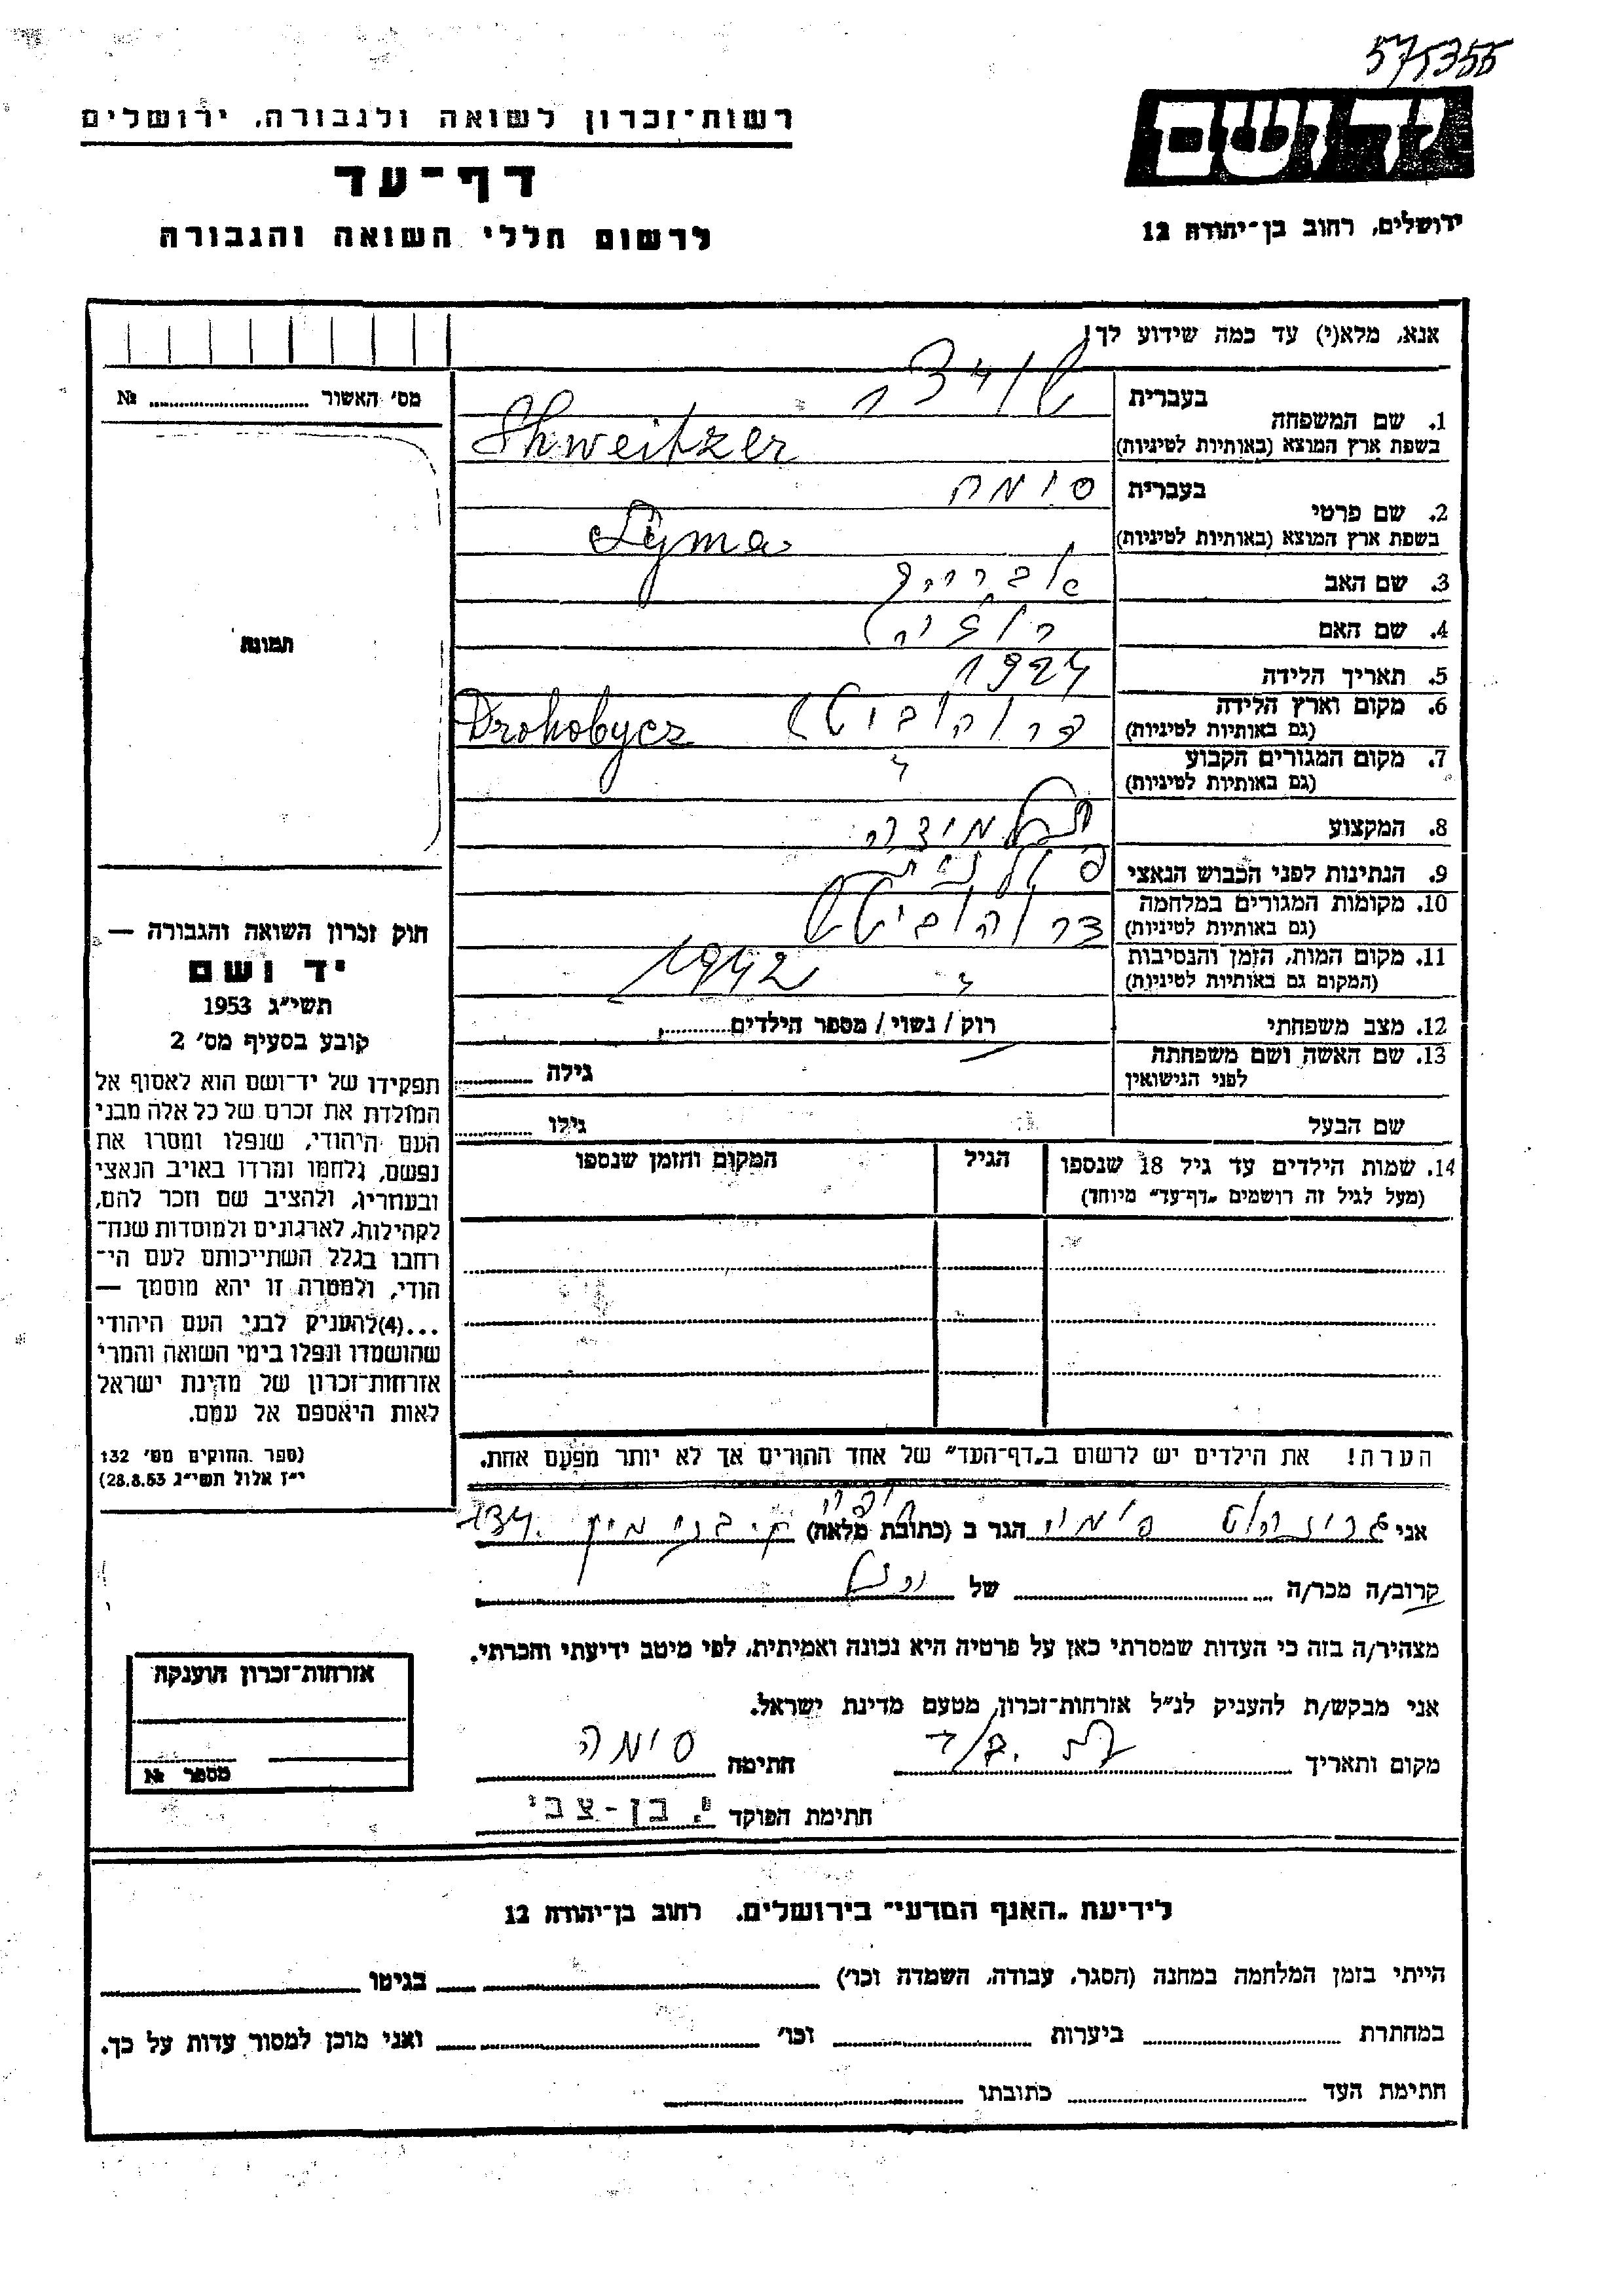 575355
יד ושם
ירושלים, רחוב בן־יהודה 12
רשות־זכרון לשואה ולגבורה, ירושלים
דף־עד
לרשום חללי השואה והגבורה
אנא, מלא(י) עד כמה שידוע לך!
1. שם המשפחה בעברית
בשפת ארץ המוצא (באותיות לטיניות) Shweitzer
2. שם פרטי בעברית סימה
בשפת ארץ המוצא (באותיות לטיניות) Syma
3. שם האב
4. שם האם רוזיה
5. תאריך הלידה 1924
6. מקום וארץ הלידה
(גם באותיות לטיניות) Drohobycz
7. מקום המגורים הקבוע
(גם באותיות לטיניות) "
8. המקצוע תלמידה
9. הנתינות לפני הכבוש הנאצי פולנית
10. מקומות המגורים במלחמה
(גם באותיות לטיניות) דרוהוביטש
11. מקום המות, הזמן והנסיבות
(המקום גם באותיות לטיניות) " 1942
12. מצב משפחתי רוק / נשוי / מספר הילדים
13. שם האשה ושם משפחתה
לפני הנישואין גילה
שם הבעל גילו
14. שמות הילדים עד גיל 18 שנספו הגיל המקום והזמן שנספו
(מעל לגיל זה רושמים „דף־עד״ מיוחד)
הערה! את הילדים יש לרשום ב„דף־העד״ של אחד ההורים אך לא יותר מפעם אחת.
מס׳ האשור №
תמונה
חוק זכרון השואה והגבורה —
יד ושם
תשי״ג 1953
קובע בסעיף מס׳ 2
תפקידו של יד־ושם הוא לאסוף אל
המולדת את זכרם של כל אלה מבני
העם היהודי, שנפלו ומסרו את
נפשם, נלחמו ומרדו באויב הנאצי
ובעוזריו, ולהציב שם וזכר להם,
לקהילות, לארגונים ולמוסדות שנח־
רבו בגלל השתייכותם לעם הי־
הודי, ולמטרה זו יהא מוסמך —
...(4) להעניק לבני העם היהודי
שהושמדו ונפלו בימי השואה והמרי
אזרחות־זכרון של מדינת ישראל
לאות היאספם אל עמם.
(ספר החוקים מס׳ 132
י״ז אלול תשי״ג 28.8.53)
אני הגר ב (כתובת מלאה) חיפה
קרוב/ה מכר/ה של
מצהיר/ה בזה כי העדות שמסרתי כאן על פרטיה היא נכונה ואמיתית, לפי מיטב ידיעתי והכרתי.
אני מבקש/ת להעניק לנ״ל אזרחות־זכרון, מטעם מדינת ישראל.
מקום ותאריך חתימה סימה
חתימת הפוקד י. בן-צבי
אזרחות־זכרון הוענקה
מספר №
לידיעת „האגף המדעי״ בירושלים, רחוב בן־יהודה 12
הייתי בזמן המלחמה במחנה (הסגר, עבודה, השמדה וכו׳) בגיטו
במחתרת ביערות וכו׳ ואני מוכן למסור עדות על כך.
חתימת העד כתובתו